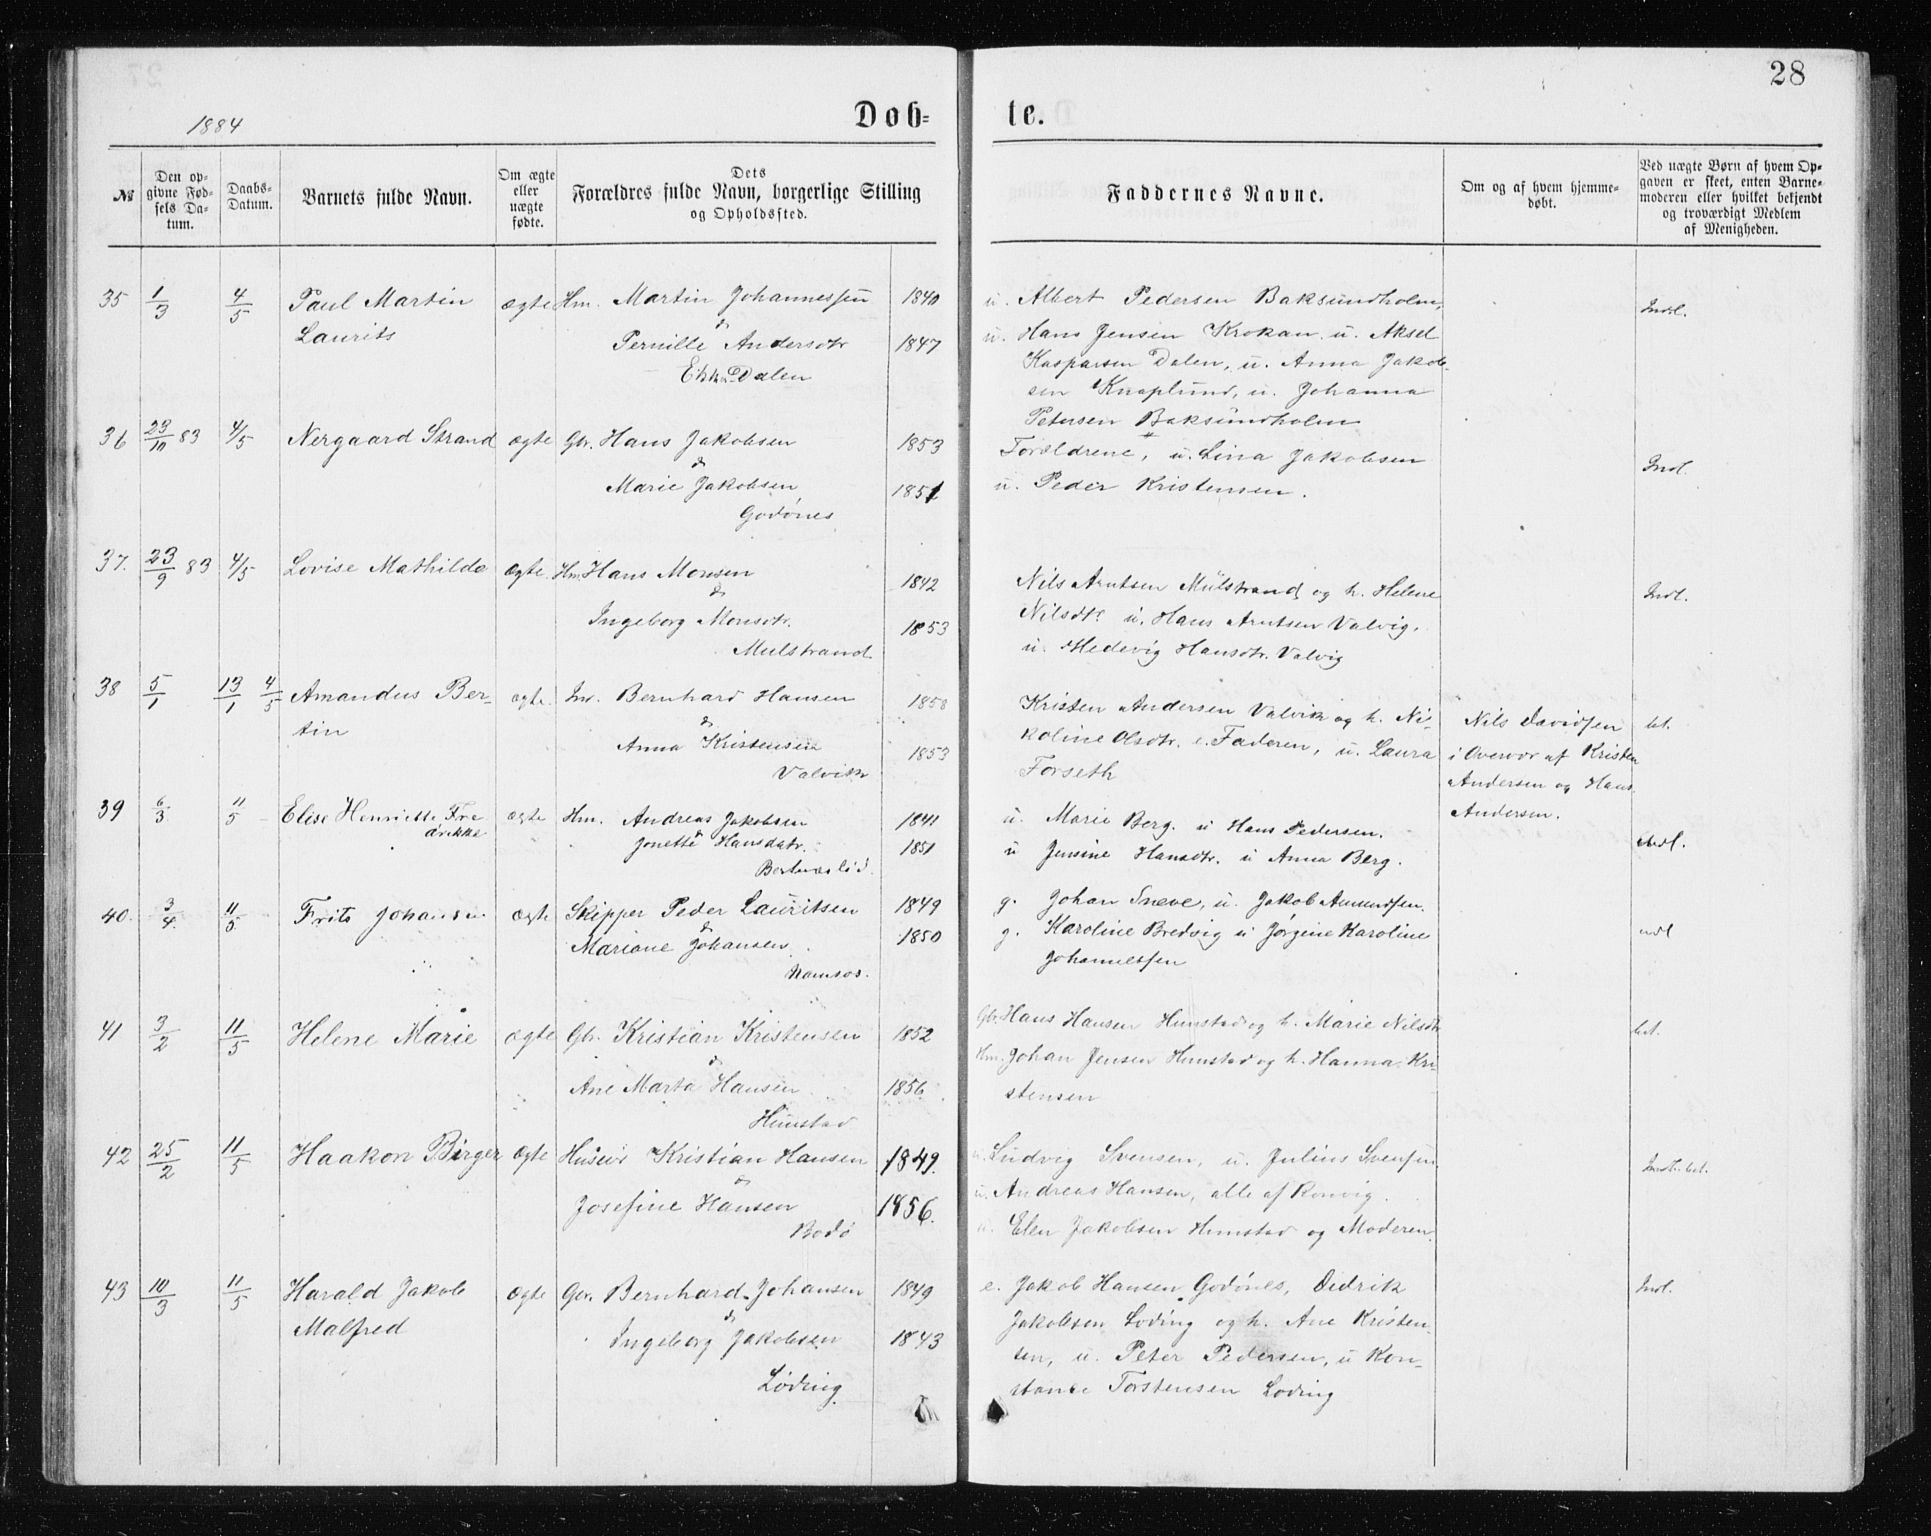 28
1884
Døb-
te.
№
Den op-
givne Fød-
sels Da-
tum.
Daabs-
Datum.
Barnets fulde Navn.
Om ægte
eller
uægte
fødte.
Dets
Forældres fulde Navn, borgerlige Stilling
og Opholdssted.
Faddernes Navne.
Om og af hvem hjemme-
døbt.
Ved uægte Børn af hvem Op-
gaven er skeet, enten Barne-
moderen eller hvilket bekjendt
og troværdigt Medlem
af Menigheden.
35 1/3 4/5 Paul Martin ægte Hm. Martin Johannessen 1840 u. Albert Pedersen Baksundholm, Indl.
Laurits & u. Hans Jensen Krokan u. Aksel
Pernille Andersdtr 1847 Kasparsen Dalen, u. Anna Jakob-
Dalen sen Knaplund, u. Johanna
Petersen Baksundholm
36 23/10 83 4/5 Nergaard Strand ægte Gbr. Hans Jakobsen 1853 Forældrene, u. Lina Jakobsen Indl.
&
Marie Jakobsen 1851 u. Peder Kristensen.
Godönes
37. 23/9 83 4/5 Lovise Mathilde ægte. Hm Hans Monsen 1842 Nils Arntsen Mulstrand og h. Helene Indl.
& Nilsdtr u. Hans Arntsen Valvig,
Ingeborg Monsdtr. 1853 u. Hedevig Hansdtr. Valvig
Mulstrand
38 5/1 13/1 4/5 Amandus Ber- ægte. Ind. Bernhard Hansen 1858 Kristen Andersen Valvik og h. Ni- Nils Davidsen bet.
tin & koline Olsdtr. e. Faderen, u. Laura i Overvær af Kristen
Anna Kristensen 1853 Forseth Andersen og Hans
Valvik Andersen.
39 6/3 11/5 Elise Henriette Fre ægte Hm. Andreas Jakobsen 1841 u. Marie Berg. u Hans Pedersen.
drikke & Jonette Hansdatr. 1851 u Jensine Hansdtr. u Anna Berg. Indl.
40. 3/4. 11/5 Frits Johansen ægte Skipper Peder Lauritsen 1849 g. Johan Sneve, u. Jakob Amundsen.
& Mariane Johansen 1850 g. Karoline Bredvig u Jørgine Karoline indl
Namsos. Johannessen
41 3/2 11/5 Helene Marie ægte Gbr. Kristian Kristensen 1852 Gbr. Hans Hansen Hunstad og h. Marie Nilsdtr bet.
& Hm. Johan Jensen Hunstad og h. Hanna Kri
Ane Marta Hansen 1856 stensen
Hunstad
42 25/2 11/5 Haakon Birger ægte Huseier Kristian Hansen 1849. u. Ludvig Svensen, u. Julius Svensen
& u. Andreas Hansen, alle af Rönvig.
Josefine Hansen 1856. u. Elen Jakobsen Hunstad og Moderen.
Bodö
43 10/3 11/5 Harald Jakob ægte Gbr. Bernhard Johansen 1849 e. Jakob Hansen Godönes, Didrik Indl.
Malfred & Jakobsen Löding og h. Ane Kristen-
Ingeborg Jakobsen 1843 sen, u. Peter Pedersen, u Kon-
Løding. stance Torstensen Löding